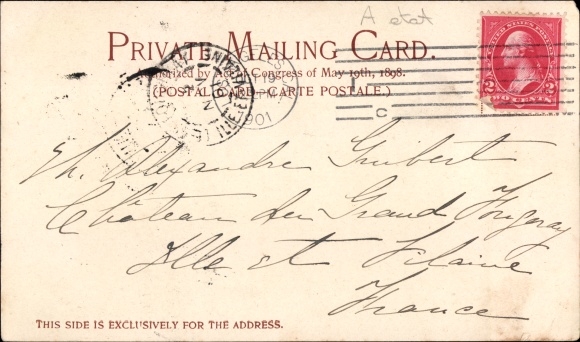 A etat
PRIVATE MAILING CARD.
Authorized by Act of Congress of May 19th, 1898.
(POSTAL CARD—CARTE POSTALE.)
UNITED STATES POSTAGE
2 2
TWO CENTS
1901
C
Alexandre Guibert
Château du Grand Fougeray
Ille et Vilaine
France
THIS SIDE IS EXCLUSIVELY FOR THE ADDRESS.